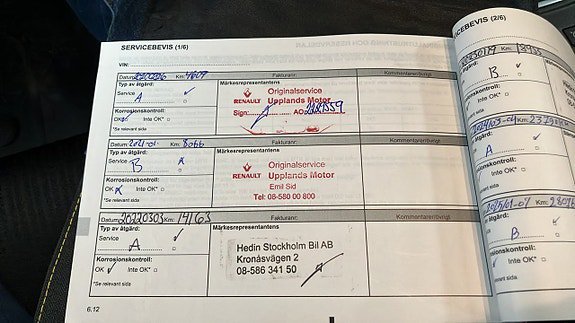 SERVICEBEVIS (1/6)
VIN:
Datum Km: 4609 Fakturanr: Kommentarer/övrigt
Typ av åtgärd: Märkesrepresentantens
Service A
Originalservice
RENAULT Upplands Motor
Sign: AO
Korrosionskontroll:
OK Inte OK*
*Se relevant sida
Datum 2021-01- Km: 8066 Fakturanr: Kommentarer/övrigt
Typ av åtgärd: Märkesrepresentantens
Service B
Originalservice
RENAULT Upplands Motor
Emil Sid
Tel: 08-580 00 800
Korrosionskontroll:
OK Inte OK*
*Se relevant sida
Datum 20220303 Km: 14163 Fakturanr: Kommentarer/övrigt
Typ av åtgärd: Märkesrepresentantens
Service A
Hedin Stockholm Bil AB
Kronåsvägen 2
08-586 341 50
Korrosionskontroll:
OK Inte OK*
*Se relevant sida
6.12
SERVICEBEVIS (2/6)
Km:
åtgärd:
B
Korrosionskontroll:
Inte OK*
relevant sida
Km:
åtgärd:
A
Korrosionskontroll:
Inte OK*
relevant sida
åtgärd:
B
Korrosionskontroll:
Inte OK*
relevant sida